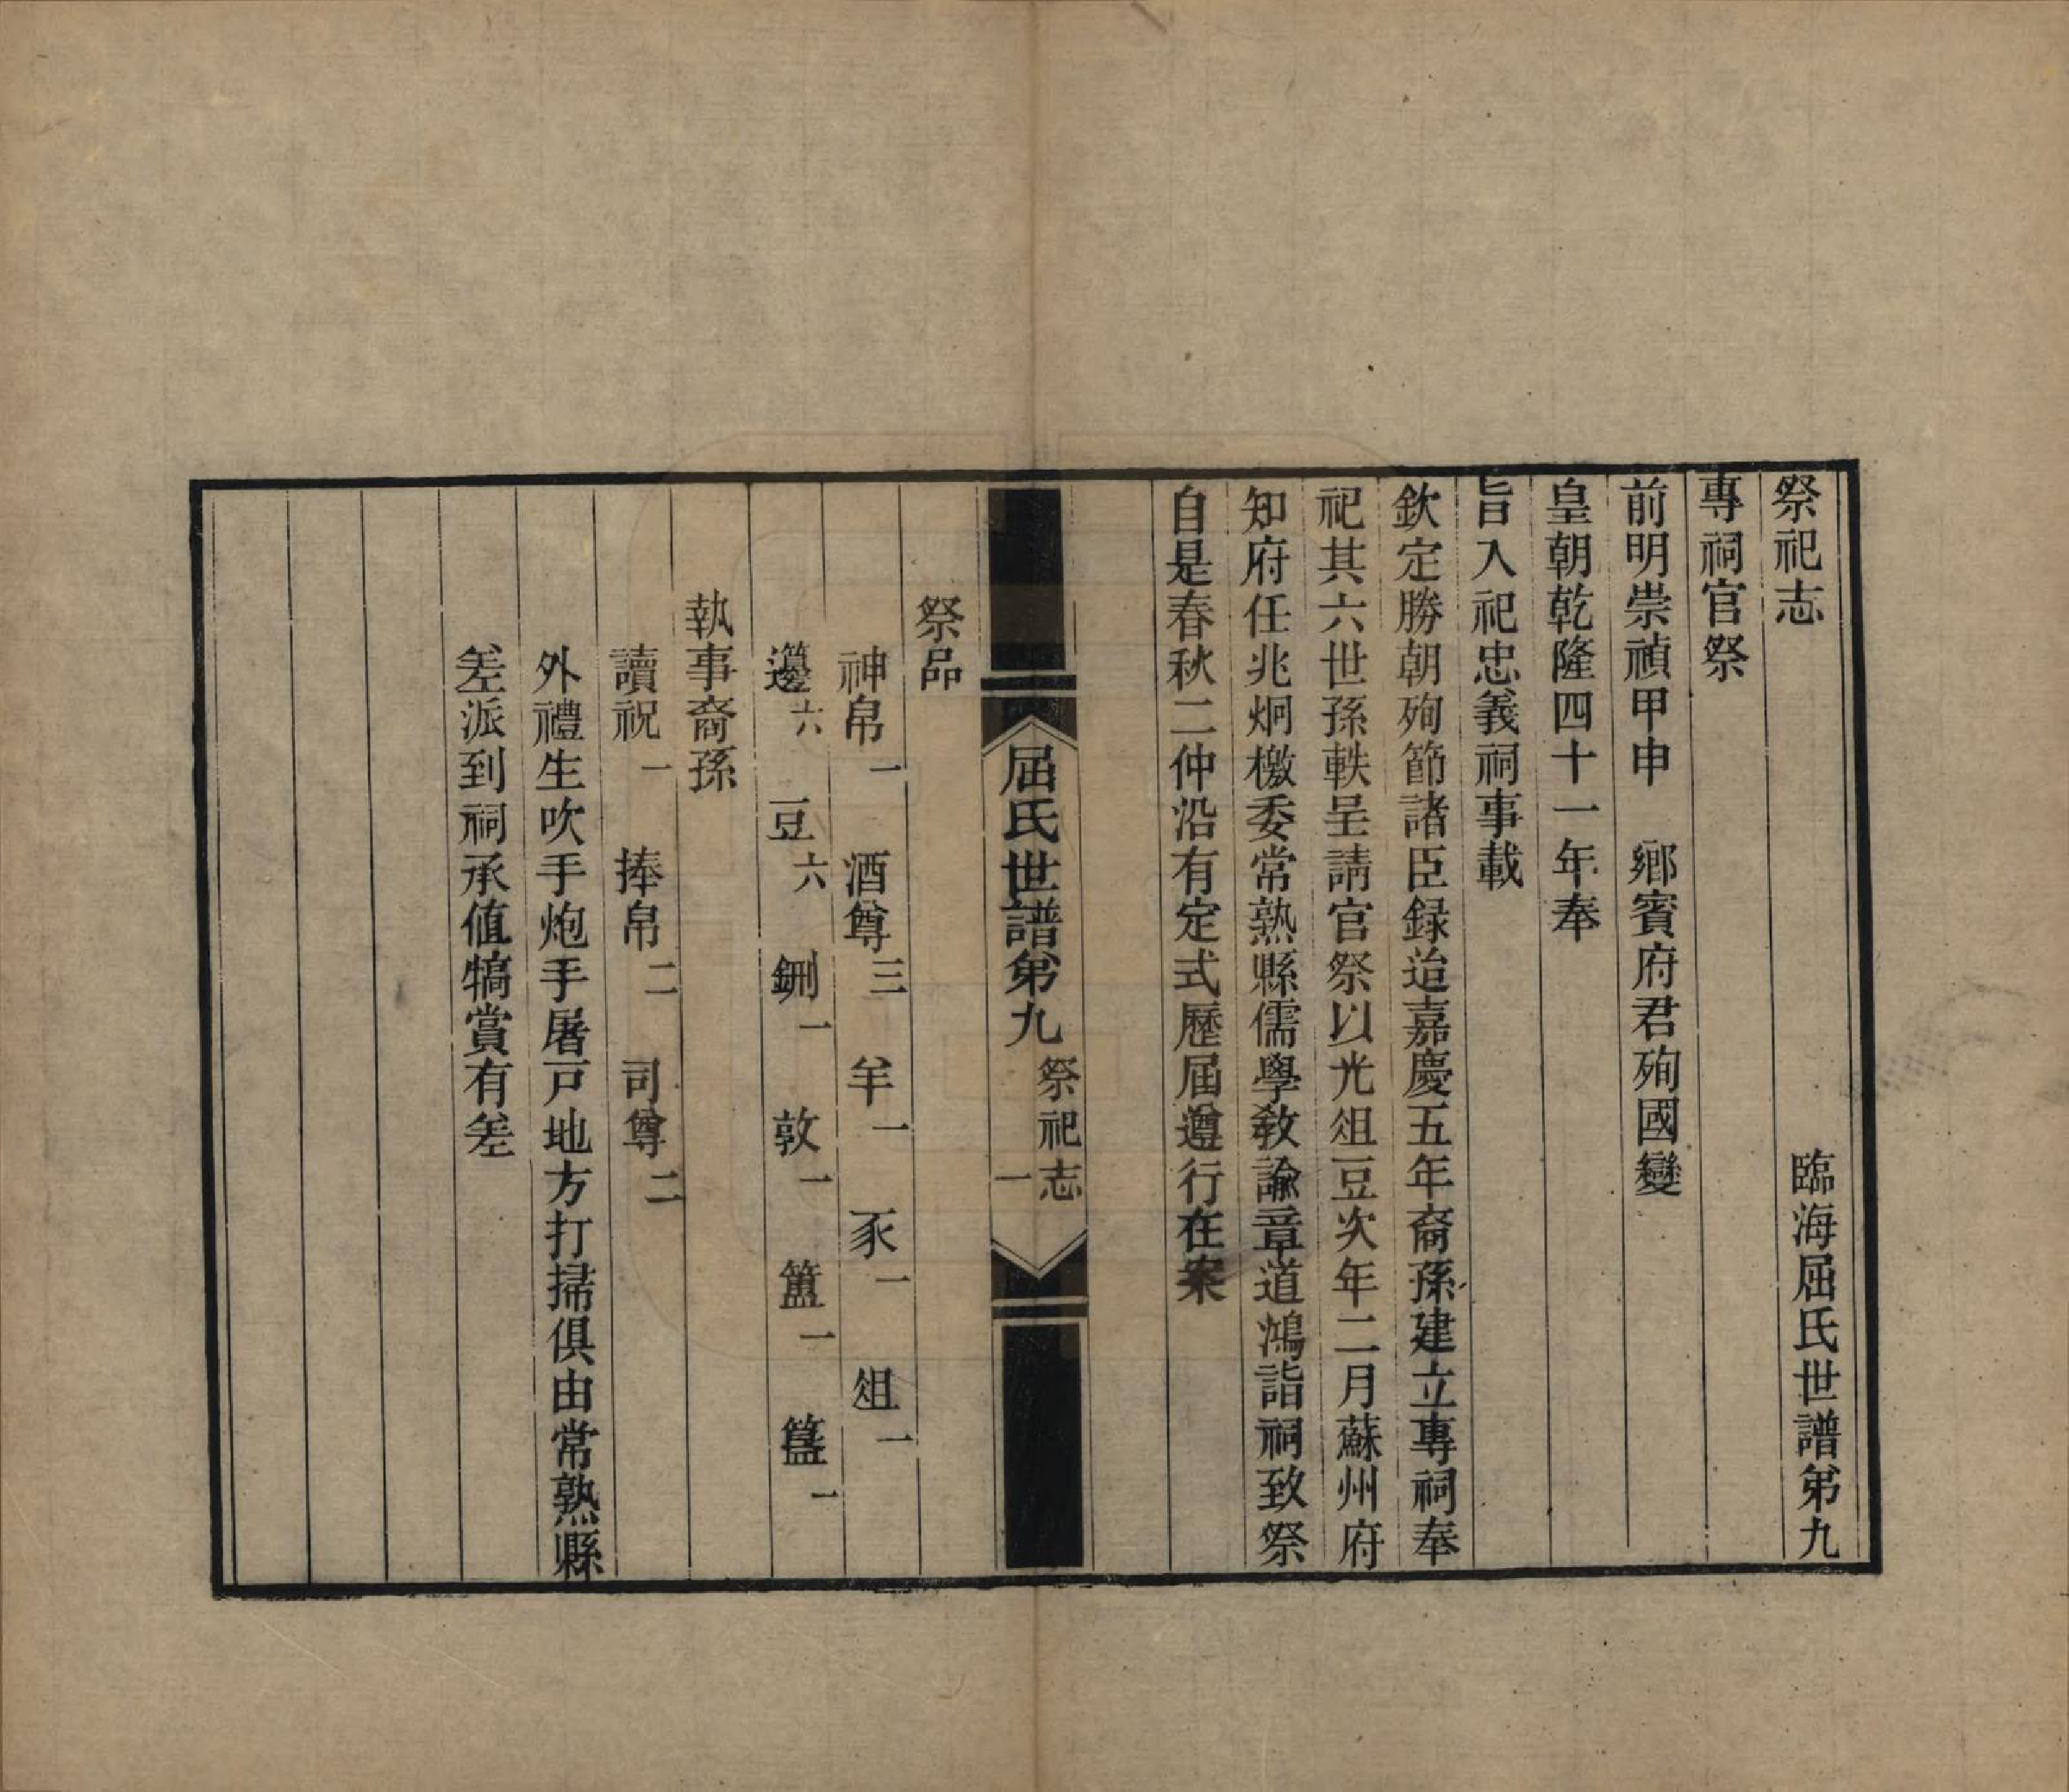 祭祀志　臨海屈氏世譜弟九
專祠官祭
前明崇禎甲申　鄉賓府君殉國變
皇朝乾隆四十一年奉
旨入祀忠義祠事載
欽定勝朝殉節諸臣録迨嘉慶五年裔孫建立專祠奉
祀其六世孫軼呈請官祭以光俎豆次年二月蘇州府
知府任兆炯檄委常熟縣儒學敎諭章道鴻詣祠致祭
自是春秋二仲沿有定式歷屆遵行在案
屈氏世譜弟九　祭祀志　一
祭品
神帛一　酒尊三　羊一　豕一　俎一
籩六　豆六　鉶一　敦一　簠一　簋一
執事裔孫
讀祝一　捧帛二　司尊二
外禮生吹手炮手屠戸地方打掃俱由常熟縣
差派到祠承值犒賞有差